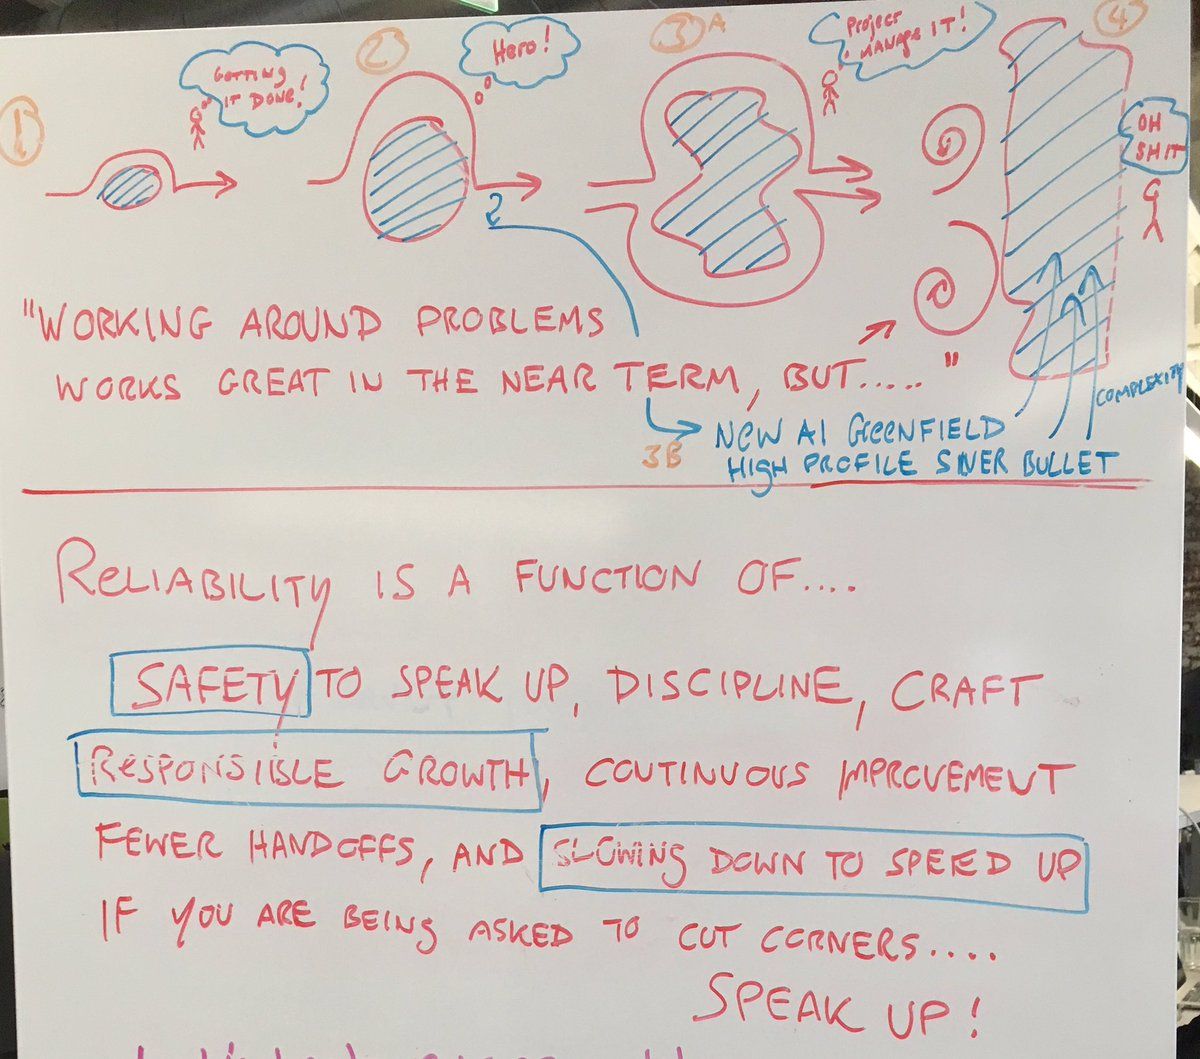 1
GETTING
IT DONE!
2
Hero!
3 A
Project
MANAGE IT!
4
OH
SHIT
"WORKING AROUND PROBLEMS
WORKS GREAT IN THE NEAR TERM, BUT....."
COMPLEXITY
3B
NEW AI GREENFIELD
HIGH PROFILE SILVER BULLET
RELIABILITY IS A FUNCTION OF....
SAFETY TO SPEAK UP, DISCIPLINE, CRAFT
RESPONSIBLE GROWTH, CONTINUOUS IMPROVEMENT
FEWER HANDOFFS, AND SLOWING DOWN TO SPEED UP
IF YOU ARE BEING ASKED TO CUT CORNERS....
SPEAK UP!